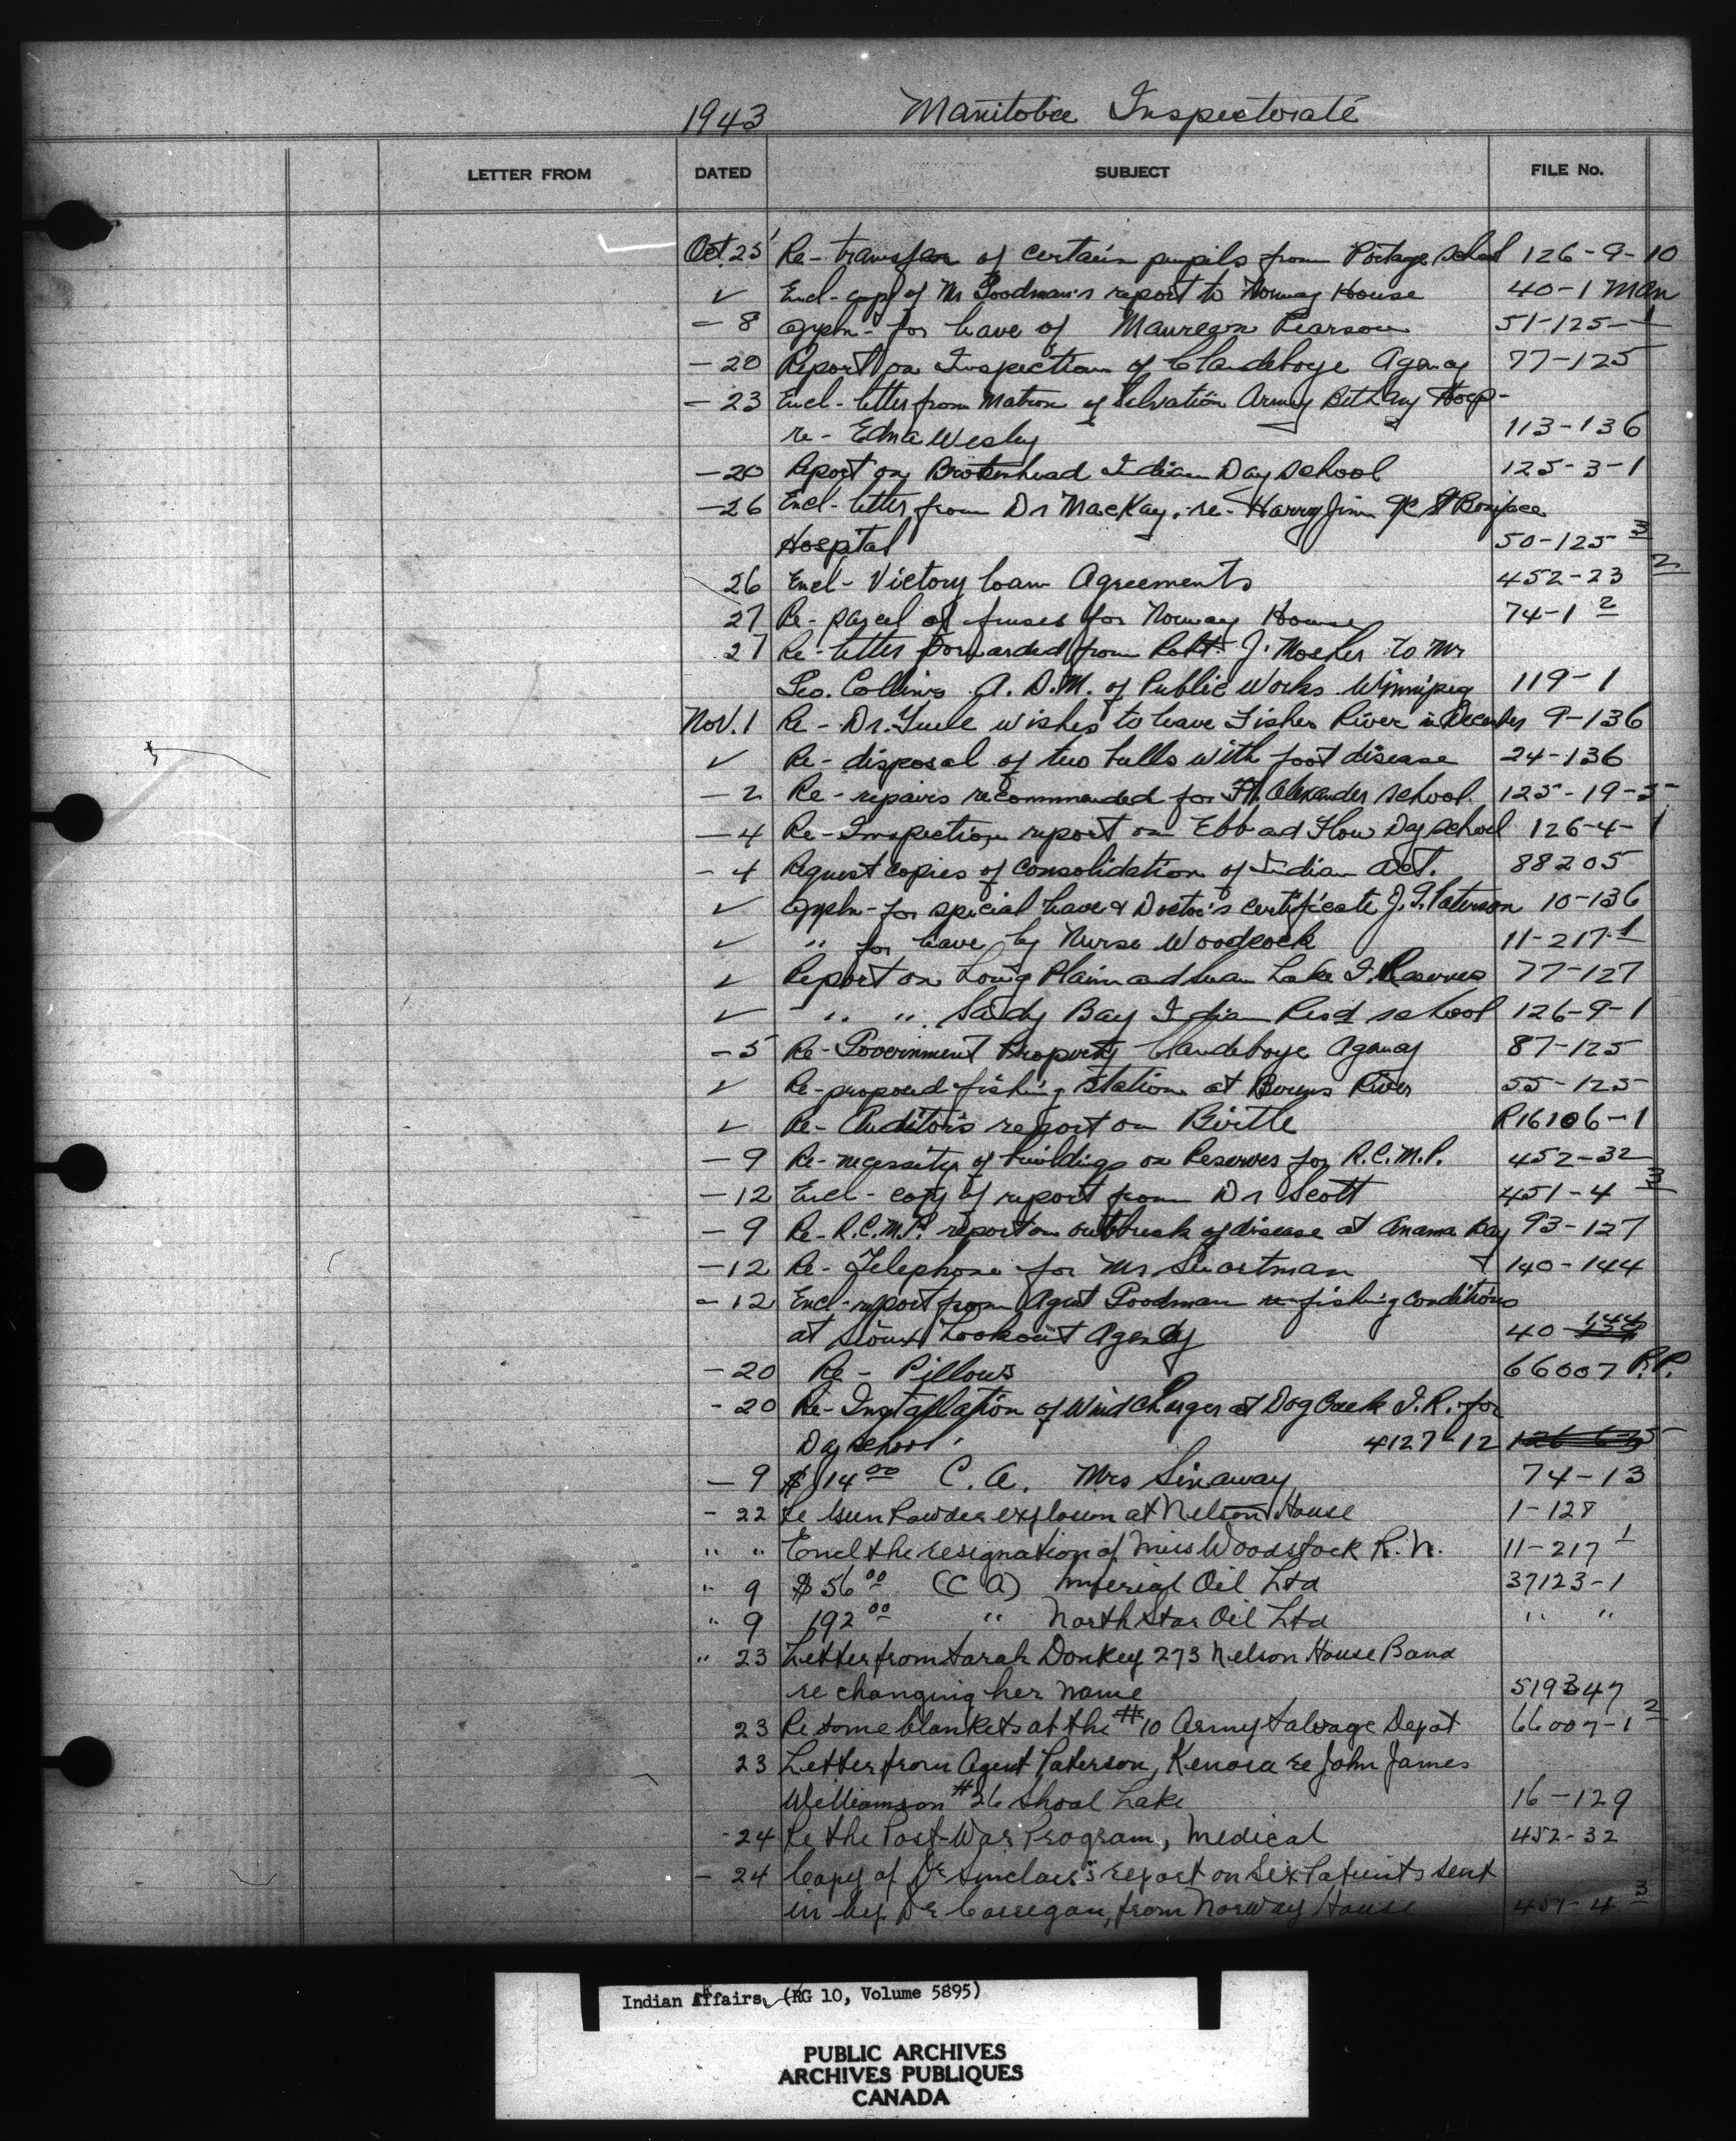 1943 Manitoba Inspectorate
LETTER FROM DATED SUBJECT FILE No.
Oct. 25 Re- transfer of certain pupils from Portage School 126-9-10
✓ Encl- copy of Mr Goodman's report to Norway House 40-1 Man
- 8 Appln- for leave of Pearson 51-125-1
- 20 Report on Inspection of Clandeboye Agency 77-125
- 23 Encl- letter from Matron of Salvation Army Bethany Hosp-
re- Edna Wesley 113-136
- 20 Report on Brokenhead Indian Day School 125-3-1
- 26 Encl- letter from Dr MacKay. re- Harry Jim St Boniface
Hospital 50-125 3
26 Encl- Victory loan Agreements 452-23 2
27 Re- parcel of fuses for Norway House 74-1 2
27 Re- letter forwarded from Robt. J. Mosher to Mr
Geo. Collins A. D. M. of Public Works Winnipeg 119-1
Nov. 1 Re- Dr. Yule wishes to leave Fisher River in December 9-136
✓ Re- disposal of two bulls with foot disease 24-136
- 2 Re- repairs recommended for Ft. Alexander School 125-19-5
- 4 Re- Inspection report on Ebb and Flow Day School 126-4-1
- 4 Request copies of consolidation of Indian Act. 88205
✓ Appln- for special leave & Doctor's certificate J. G. Paterson 10-136
✓ " for leave by Nurse Woodcock 11-217-1
✓ Report on Long Plain and Swan Lake I. Reserves 77-127
✓ " " Sandy Bay Indian Resd school 126-9-1
- 5 Re- Government Property Clandeboye Agency 87-125
✓ Re- proposed fishing station at Berens River 55-125
✓ Re- Auditors report on Birtle R16106-1
- 9 Re- necessity of buildings on Reserves for R.C.M.P. 452-32
- 12 Encl- copy of report from Dr Scott 451-4 3
- 9 Re- R.C.M.P. report on outbreak of disease at Anama Bay 93-127
- 12 Re- Telephone for Mr Swartman 140-144
- 12 Encl- report from Agent Goodman re fishing conditions
at Sioux Lookout Agency 40-144
- 20 Re- Pillows 66007 P.P.
- 20 Re- Installation of Wind Charger at Dog Creek I.R. for
Day School 4127-12
- 9 $114 00 C. A. Mrs Sinaway 74-13
- 22 Re Gun Powder explosion at Nelson House 1-128
" " Encl the resignation of Miss Woodstock R. N. 11-217 1
" 9 $56 00 (C A) Imperial Oil Ltd 37123-1
" 9 192 00 " North Star Oil Ltd " "
" 23 Letter from Sarah Donkey 273 Nelson House Band
re changing her name 519347
23 Re some blankets at the #10 Army Salvage Depot 66007-1 2
23 Letter from Agent Paterson, Kenora re John James
Williamson #26 Shoal Lake 16-129
- 24 Re the Post-War Program, Medical 452-32
- 24 Copy of Dr Sinclair's report on six Patients sent
in by Dr Corrigan, from Norway House 451-4 3
Indian Affairs, (RG 10, Volume 5895)
PUBLIC ARCHIVES
ARCHIVES PUBLIQUES
CANADA